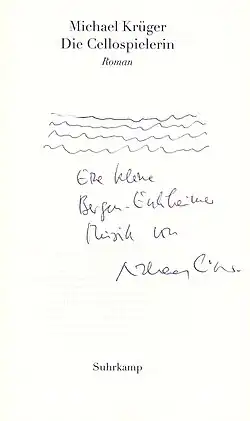 Michael Krüger
Die Cellospielerin
Roman
Eine kleine
Bergen-Enkheimer
Musik von
Suhrkamp